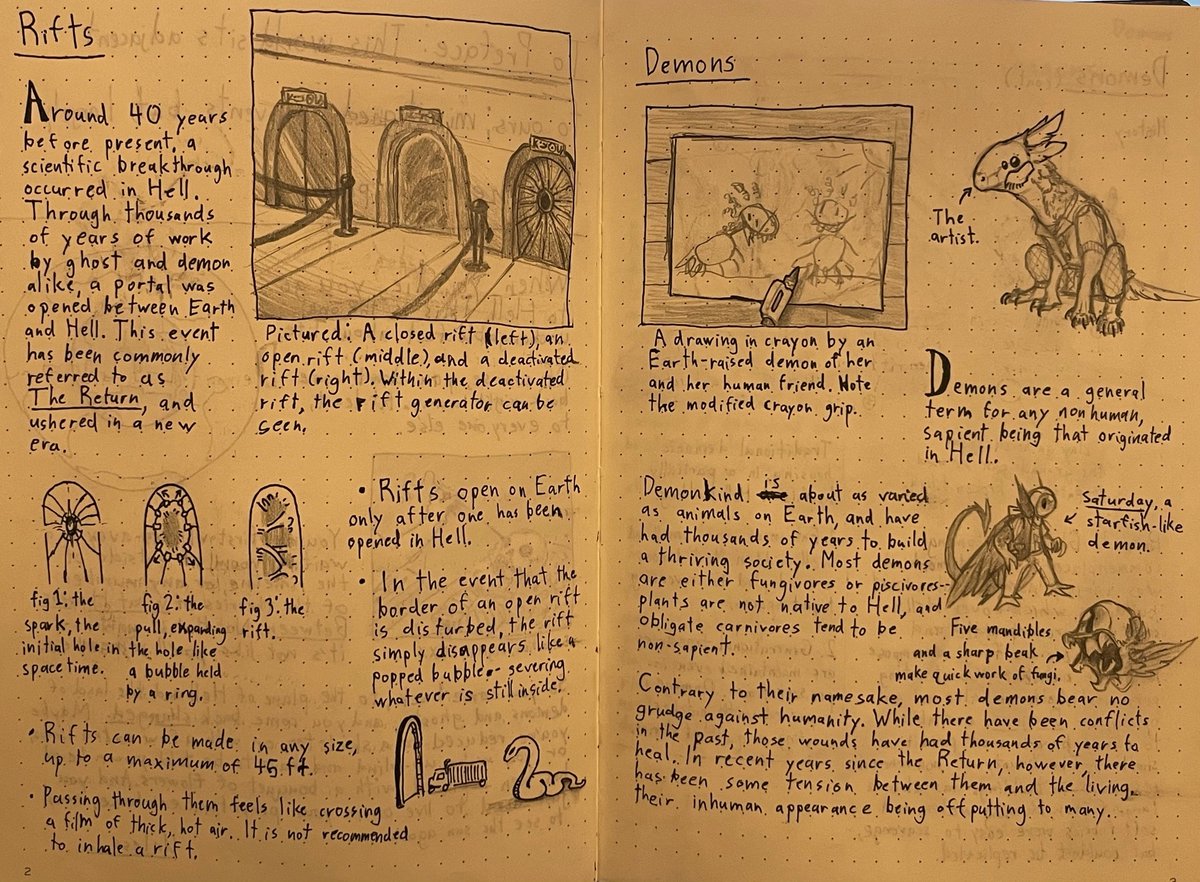 Rifts
Around 40 years
before present, a
scientific breakthrough
occurred in Hell.
Through thousands
of years of work
by ghost and demon
alike, a portal was
opened between Earth
and Hell. This event
has been commonly
referred to as
The Return, and
ushered in a new
era.
Pictured: A closed rift (left), an
open rift (middle), and a deactivated
rift (right). Within the deactivated
rift, the rift generator can be
seen.
fig 1: the
spark, the
initial hole in
spacetime.
fig 2: the
pull, expanding
the hole like
a bubble held
by a ring.
fig 3: the
rift.
• Rifts open on Earth
only after one has been
opened in Hell.
• In the event that the
border of an open rift
is disturbed, the rift
simply disappears like a
popped bubble - severing
whatever is still inside.
• Rifts can be made in any size,
up to a maximum of 45 ft.
• Passing through them feels like crossing
a film of thick, hot air. It is not recommended
to inhale a rift.
2
Demons
The
artist.
A drawing in crayon by an
Earth-raised demon of her
and her human friend. Note
the modified crayon grip.
Demons are a general
term for any nonhuman,
sapient being that originated
in Hell.
Demonkind is about as varied
as animals on Earth, and have
had thousands of years to build
a thriving society. Most demons
are either fungivores or piscivores--
plants are not native to Hell, and
obligate carnivores tend to be
non-sapient.
Saturday, a
starfish-like
demon.
Five mandibles
and a sharp beak
make quick work of fungi.
Contrary to their namesake, most demons bear no
grudge against humanity. While there have been conflicts
in the past, those wounds have had thousands of years to
heal. In recent years since the Return, however, there
has been some tension between them and the living,
their inhuman appearance being offputting to many.